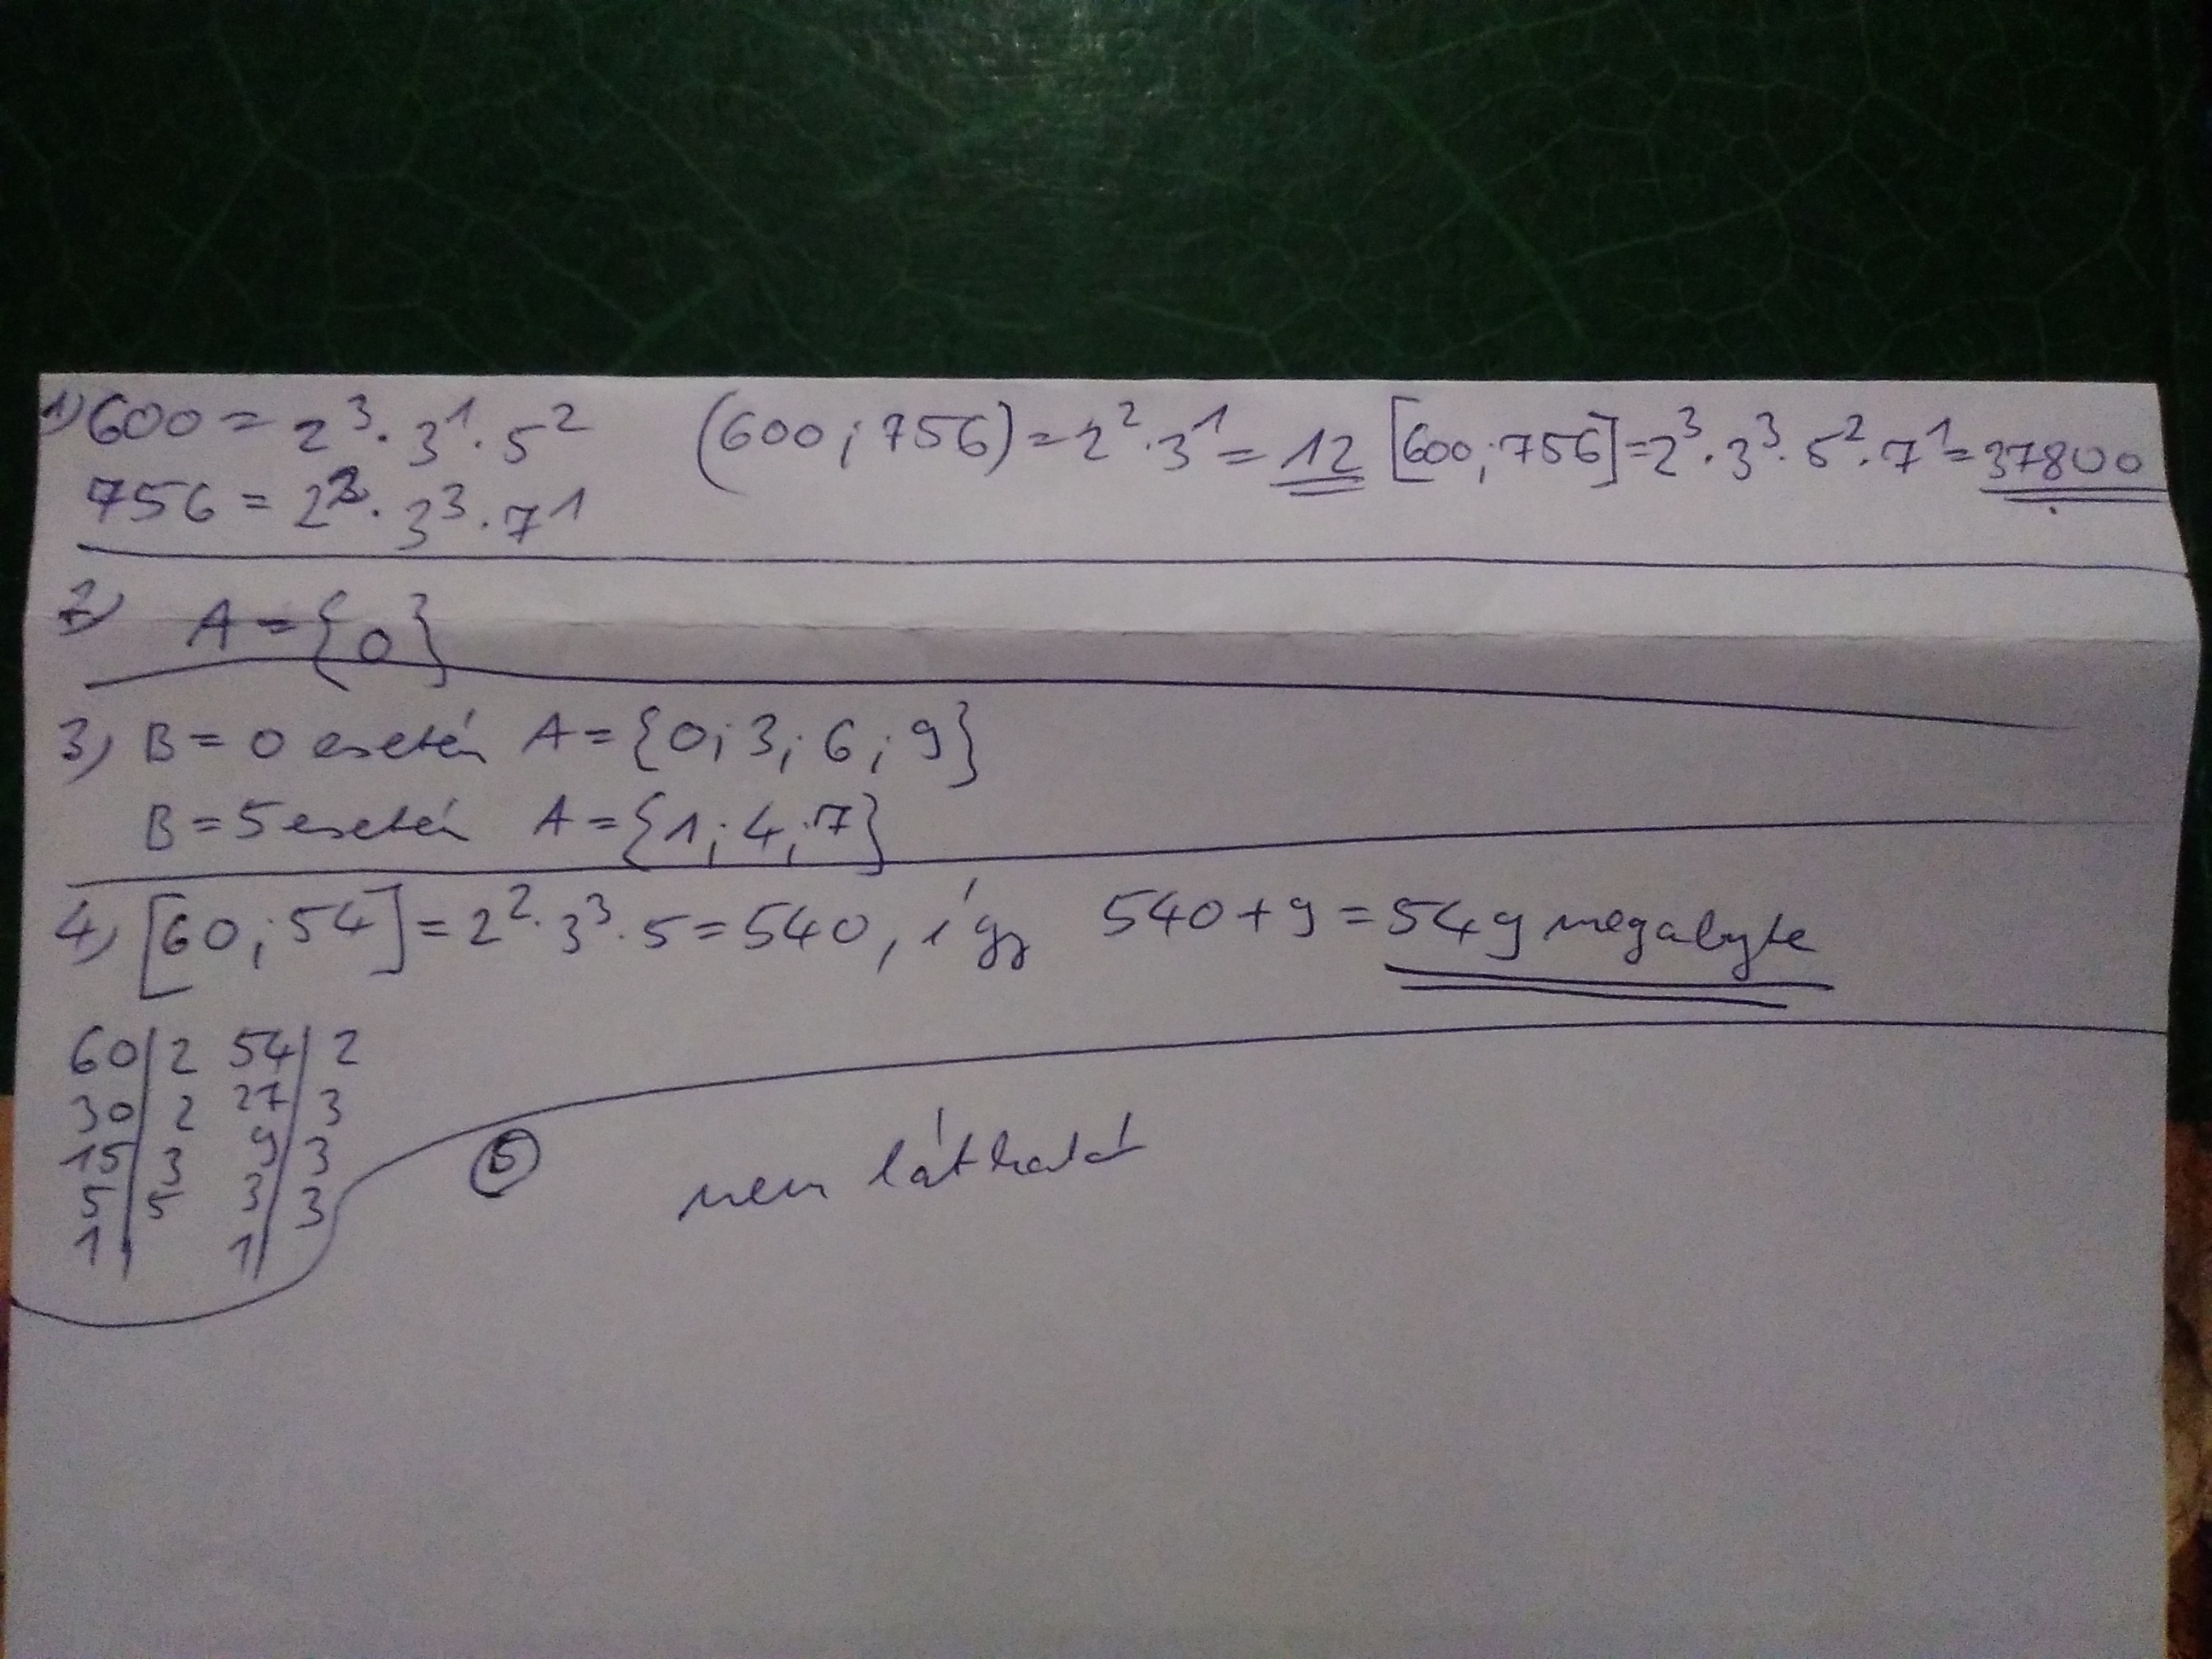 1) 600 = 2³ · 3¹ · 5² (600; 756) = 2² · 3¹ = 12 [600; 756] = 2³ · 3³ · 5² · 7¹ = 37800
756 = 2² · 3³ · 7¹
2) A = {0}
3) B = 0 esetén A = {0; 3; 6; 9}
B = 5 esetén A = {1; 4; 7}
4) [60; 54] = 2² · 3³ · 5 = 540, így 540 + 9 = 549 megabyte
60 | 2 54 | 2
30 | 2 27 | 3
15 | 3 9 | 3
5 | 5 3 | 3
1 | 1 |
5 nem látható